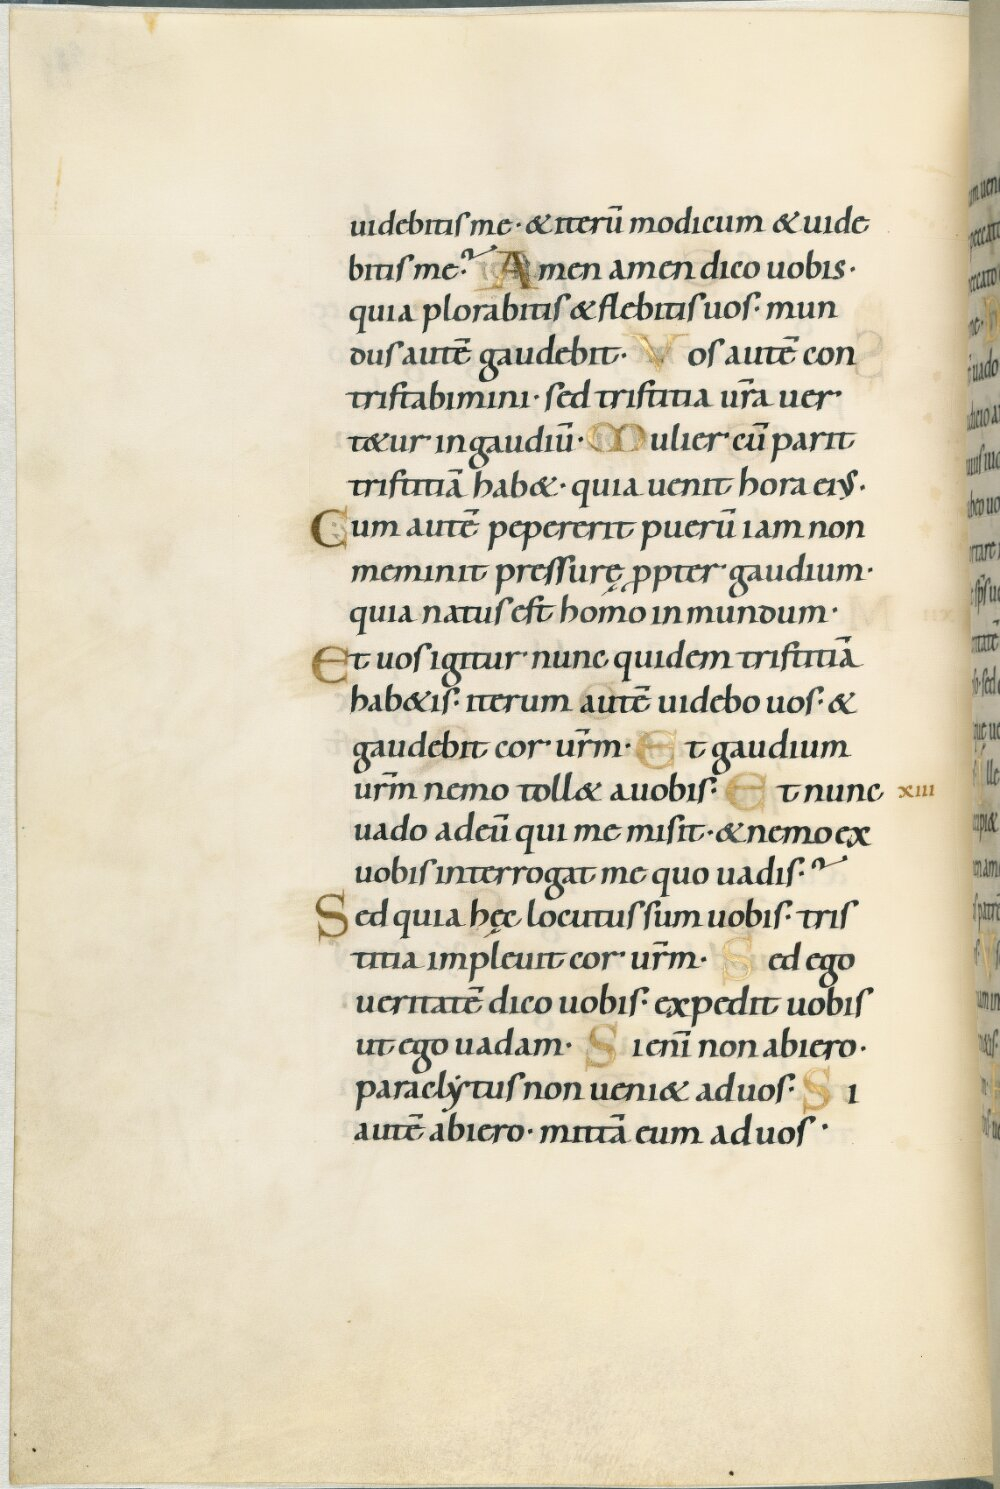 uidebitis me· & iterū modicum & uide
bitis me? Amen amen dico uobis·
quia plorabitis & flebitis uos· mun
dus autē gaudebit· Vos autē con
tristabimini· sed tristitia ur̄a uer
t&ur in gaudiū· Mulier cū parit
tristitiā hab&· quia uenit hora eiꝰ·
Cum autē pepererit puerū iam non
meminit pressurę ꝓpter gaudium·
quia natus est homo in mundum·
Et uos igitur nunc quidem tristitiā
hab&is· iterum autē uidebo uos· &
gaudebit cor ur̄m· Et gaudium
ur̄m nemo toll& a uobis· Et nunc xiii
uado ad eū qui me misit· & nemo ex
uobis interrogat me quo uadis?
Sed quia hęc locutus sum uobis· tris
titia impleuit cor ur̄m· Sed ego
ueritatē dico uobis· expedit uobis
ut ego uadam· Si eni̅ non abiero·
paraclẏtus non ueni& ad uos· Si
autē abiero· mittā eum ad uos·